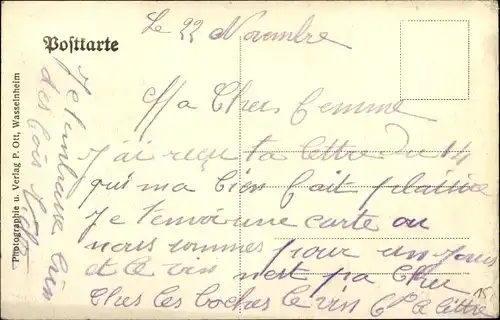 Postkarte
Le 22 Novembre
Ma Cher femme
J'ai reçu ta lettre du 14
qui ma bien fait plaisir
Je t'envoi une carte ou
nous sommes pour un jours
et le vin n'est pa Cher
Ches les boches le vin 6 le littre
Je t'embrasse bien
des fois
Photographie u. Verlag P. Ott, Wasselnheim
15